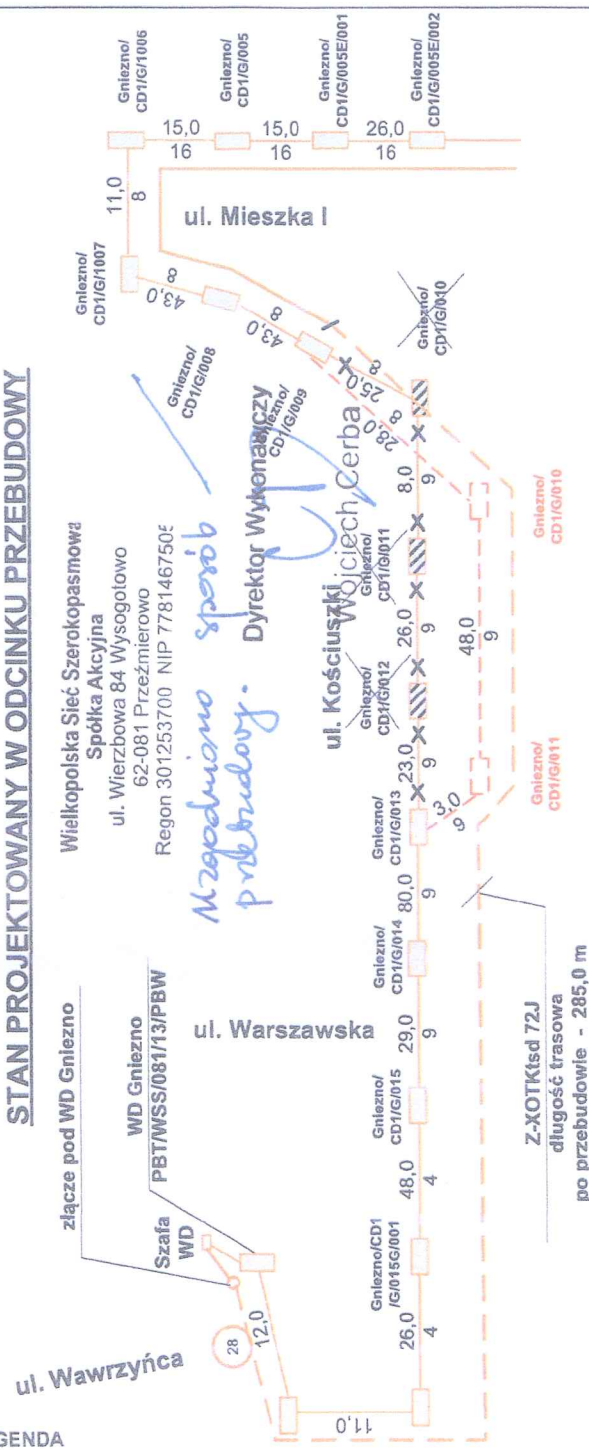 STAN PROJEKTOWANY W ODCINKU PRZEBUDOWY
złącze pod WD Gniezno
WD Gniezno
PBT/WSS/081/13/PBW
Szafa
WD
ul. Wawrzyńca
28
12,0
11,0
Wielkopolska Sieć Szerokopasmowa
Spółka Akcyjna
ul. Wierzbowa 84 Wysogotowo
62-081 Przeźmierowo
Regon 301253700 NIP 7781467505
Uzgodniono sposób
przebudowy.
Dyrektor Wykonawczy
Wojciech Cerba
ul. Warszawska
ul. Kościuszki
ul. Mieszka I
Gniezno/CD1
/G/015G/001
Gniezno/
CD1/G/015
Gniezno/
CD1/G/014
Gniezno/
CD1/G/013
Gniezno/
CD1/G/012
Gniezno/
CD1/G/011
Gniezno/
CD1/G/010
Gniezno/
CD1/G/009
Gniezno/
CD1/G/008
Gniezno/
CD1/G/1007
Gniezno/
CD1/G/1006
Gniezno/
CD1/G/005
Gniezno/
CD1/G/005E/001
Gniezno/
CD1/G/005E/002
26,0
4
48,0
4
29,0
9
80,0
9
23,0
9
26,0
9
8,0
9
25,0
8
28,0
8
43,0
8
43,0
8
11,0
8
15,0
16
15,0
16
26,0
16
3,0
9
48,0
9
Gniezno/
CD1/G/011
Gniezno/
CD1/G/010
Z-XOTKtsd 72J
długość trasowa
po przebudowie - 285,0 m
GENDA